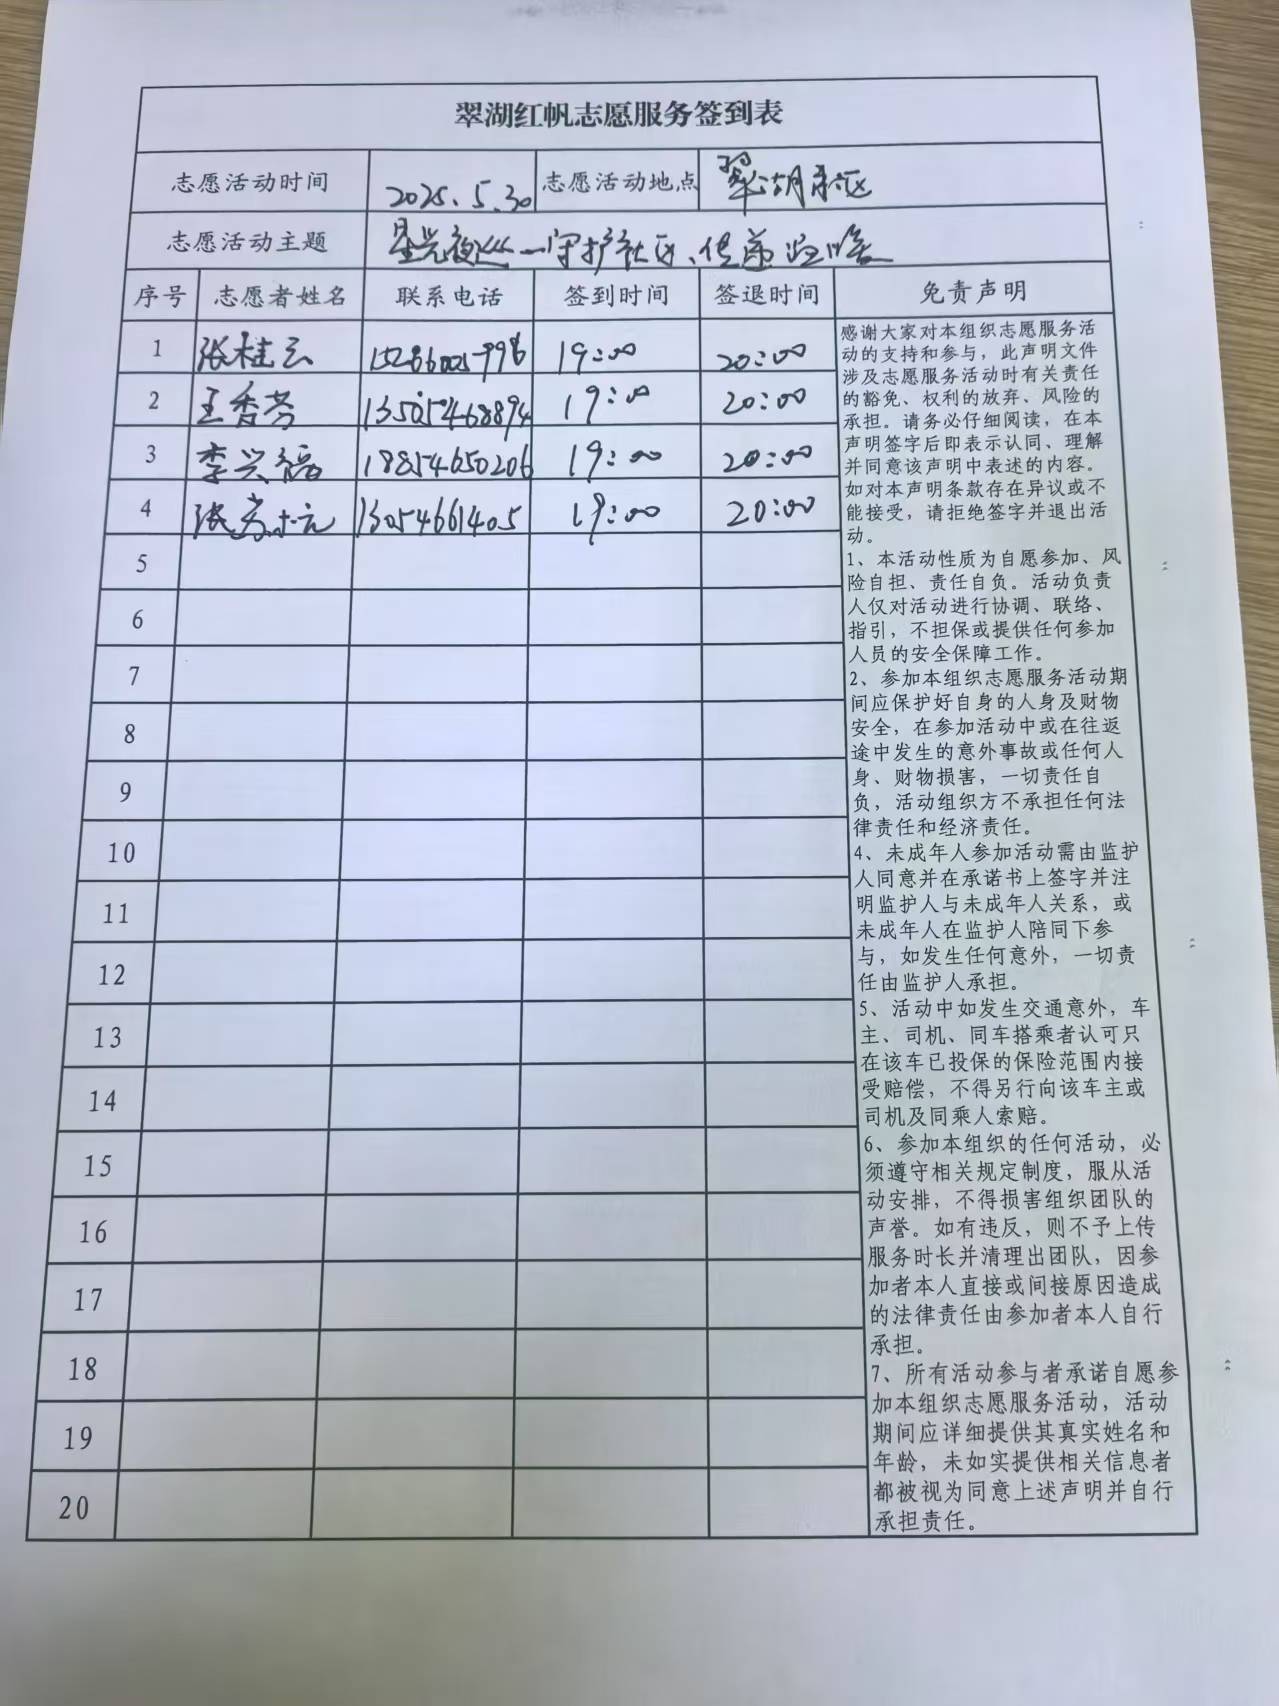 翠湖红帆志愿服务签到表
志愿活动时间 2025.5.30 志愿活动地点 翠湖社区
志愿活动主题 星光夜巡—守护社区、传递温暖
序号 志愿者姓名 联系电话 签到时间 签退时间 免责声明
1 张桂云 19:00 20:00
2 王香芳 13505468894 19:00 20:00
3 李兴福 18854650206 19:00 20:00
4 13054661405 19:00 20:00
5
6
7
8
9
10
11
12
13
14
15
16
17
18
19
20
感谢大家对本组织志愿服务活
动的支持和参与，此声明文件
涉及志愿服务活动时有关责任
的豁免、权利的放弃、风险的
承担。请务必仔细阅读，在本
声明签字后即表示认同、理解
并同意该声明中表述的内容。
如对本声明条款存在异议或不
能接受，请拒绝签字并退出活
动。
1、本活动性质为自愿参加、风
险自担、责任自负。活动负责
人仅对活动进行协调、联络、
指引，不担保或提供任何参加
人员的安全保障工作。
2、参加本组织志愿服务活动期
间应保护好自身的人身及财物
安全，在参加活动中或在往返
途中发生的意外事故或任何人
身、财物损害，一切责任自
负，活动组织方不承担任何法
律责任和经济责任。
4、未成年人参加活动需由监护
人同意并在承诺书上签字并注
明监护人与未成年人关系，或
未成年人在监护人陪同下参
与，如发生任何意外，一切责
任由监护人承担。
5、活动中如发生交通意外，车
主、司机、同车搭乘者认可只
在该车已投保的保险范围内接
受赔偿，不得另行向该车主或
司机及同乘人索赔。
6、参加本组织的任何活动，必
须遵守相关规定制度，服从活
动安排，不得损害组织团队的
声誉。如有违反，则不予上传
服务时长并清理出团队，因参
加者本人直接或间接原因造成
的法律责任由参加者本人自行
承担。
7、所有活动参与者承诺自愿参
加本组织志愿服务活动，活动
期间应详细提供其真实姓名和
年龄，未如实提供相关信息者
都被视为同意上述声明并自行
承担责任。